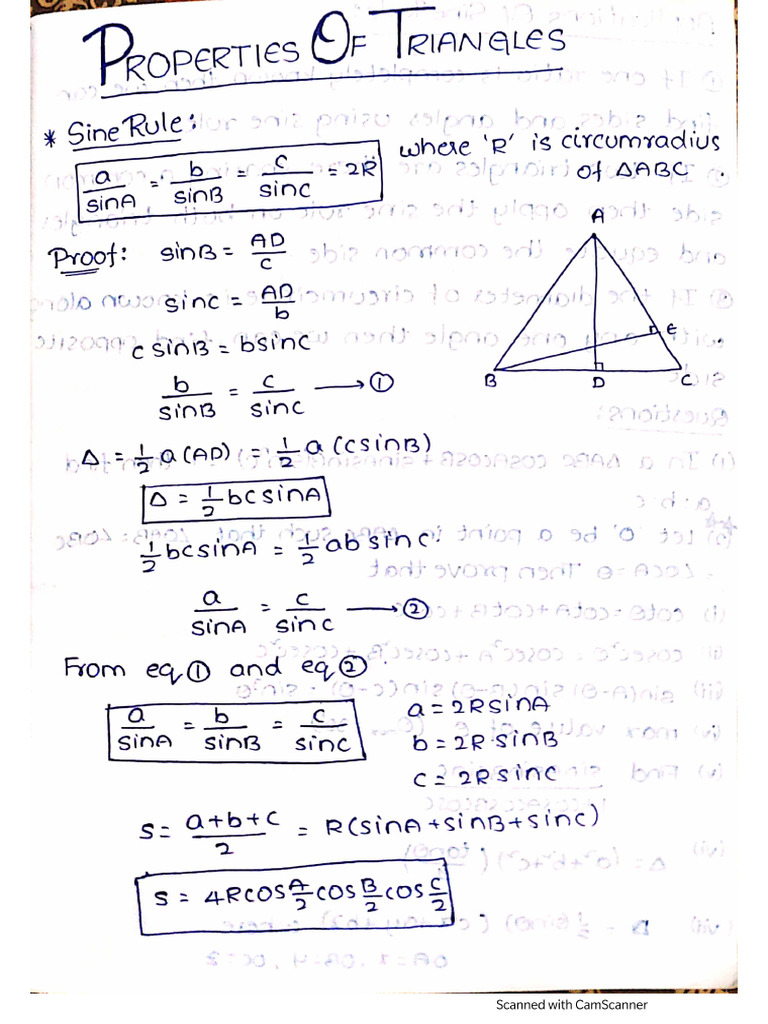 PROPERTIES OF TRIANGLES
* Sine Rule:
a/sinA = b/sinB = c/sinC = 2R where 'R' is circumradius of ΔABC.
A
Proof: sinB = AD/c
sinC = AD/b
E
c sinB = b sinC
B D C
b/sinB = c/sinC → ①
Δ = 1/2 a(AD) = 1/2 a(c sinB)
Δ = 1/2 bc sinA
1/2 bc sinA = 1/2 ab sinC
a/sinA = c/sinC → ②
From eq① and eq②
a/sinA = b/sinB = c/sinC
a = 2R sinA
b = 2R sinB
c = 2R sinC
S = a+b+c/2 = R(sinA + sinB + sinC)
S = 4R cos A/2 cos B/2 cos C/2
Scanned with CamScanner